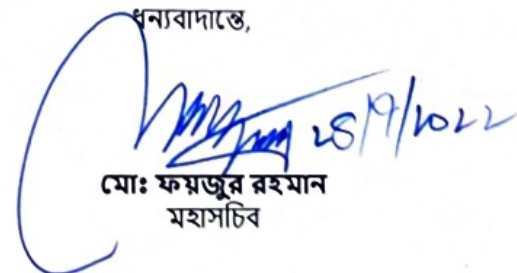 ধন্যবাদান্তে,
28/9/2022
মোঃ ফয়জুর রহমান
মহাসচিব